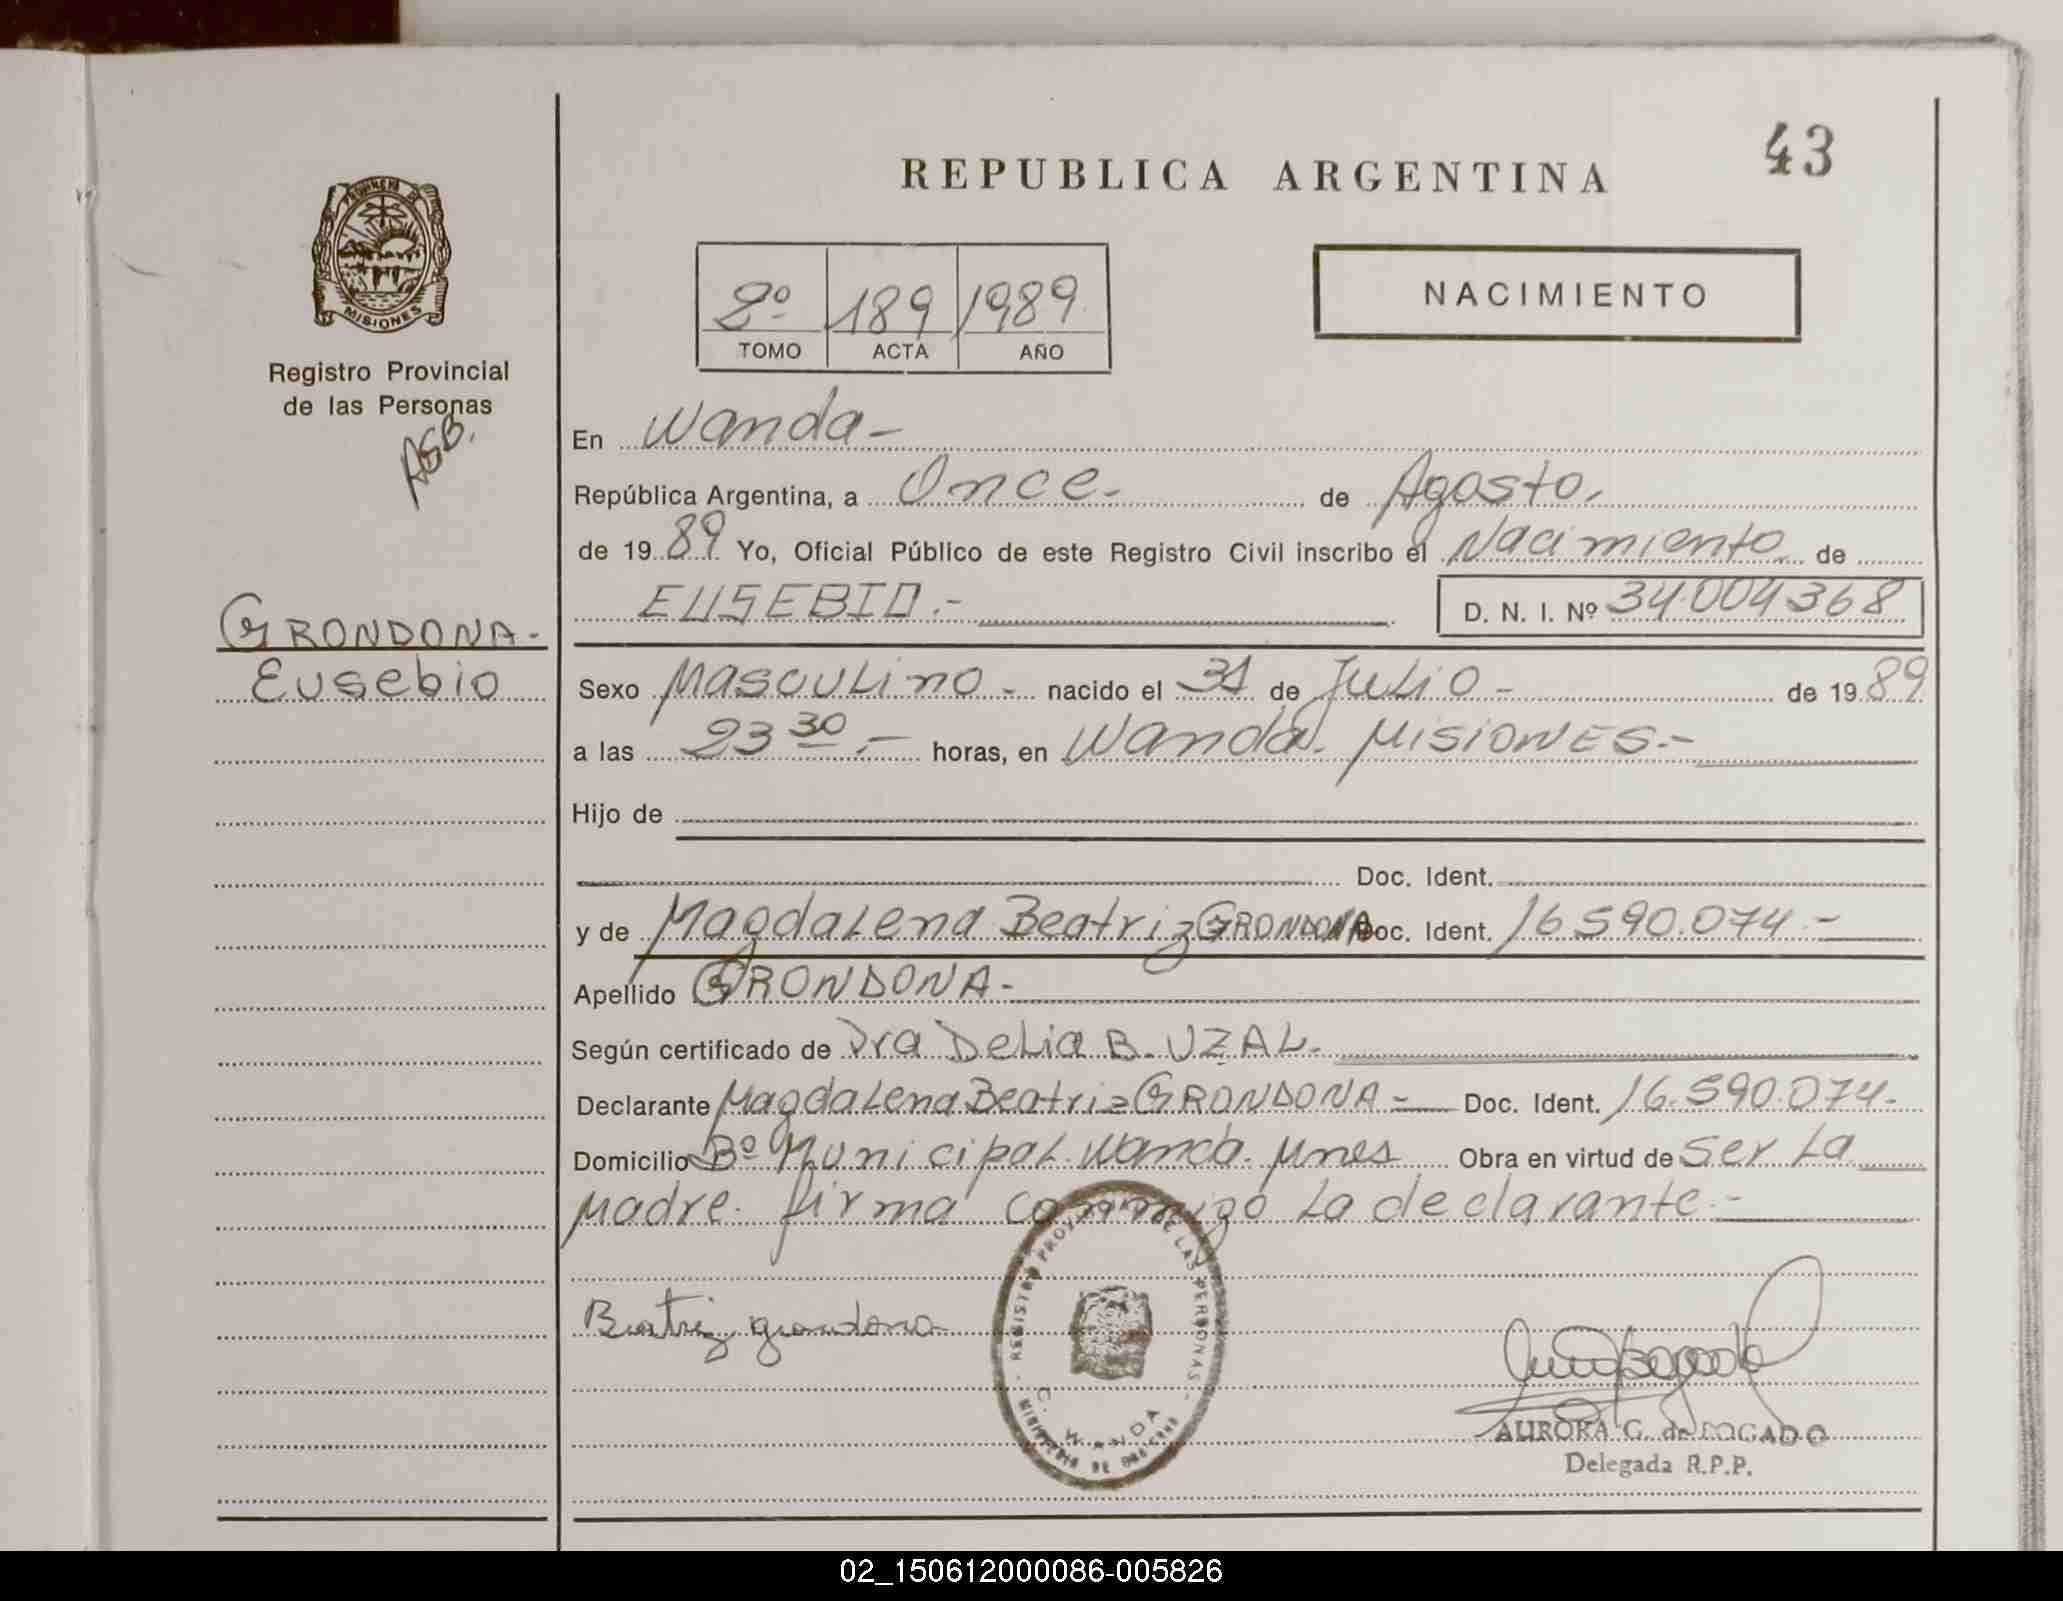 43
REPUBLICA ARGENTINA
NACIMIENTO
2º 189 1989
TOMO ACTA AÑO
PROVINCIA DE
MISIONES
Registro Provincial
de las Personas
AGB.
GRONDONA-
Eusebio
En Wanda-
República Argentina, a Once- de Agosto.
de 1989 Yo, Oficial Público de este Registro Civil inscribo el Nacimiento de
EUSEBIO.- D. N. I. Nº 34.004368
Sexo Masculino- nacido el 31 de Julio- de 1989
a las 23 30.- horas, en Wanda. MISIONES.-
Hijo de
Doc. Ident.
y de Magdalena Beatriz GRONDONA Doc. Ident. 16.590.074.-
Apellido GRONDONA-
Según certificado de Dra Delia B. UZAL.
Declarante Magdalena Beatriz GRONDONA- Doc. Ident. 16.590.074.
Domicilio Bº Municipal. Wanda. Mnes Obra en virtud de ser la
Madre. firma conmigo la declarante.-
Beatriz grondona
REGISTRO PROVINCIAL DE LAS PERSONAS
C. WANDA
MINISTERIO DE GOBIERNO
AURORA G. de BOGADO
Delegada R.P.P.
02_150612000086-005826